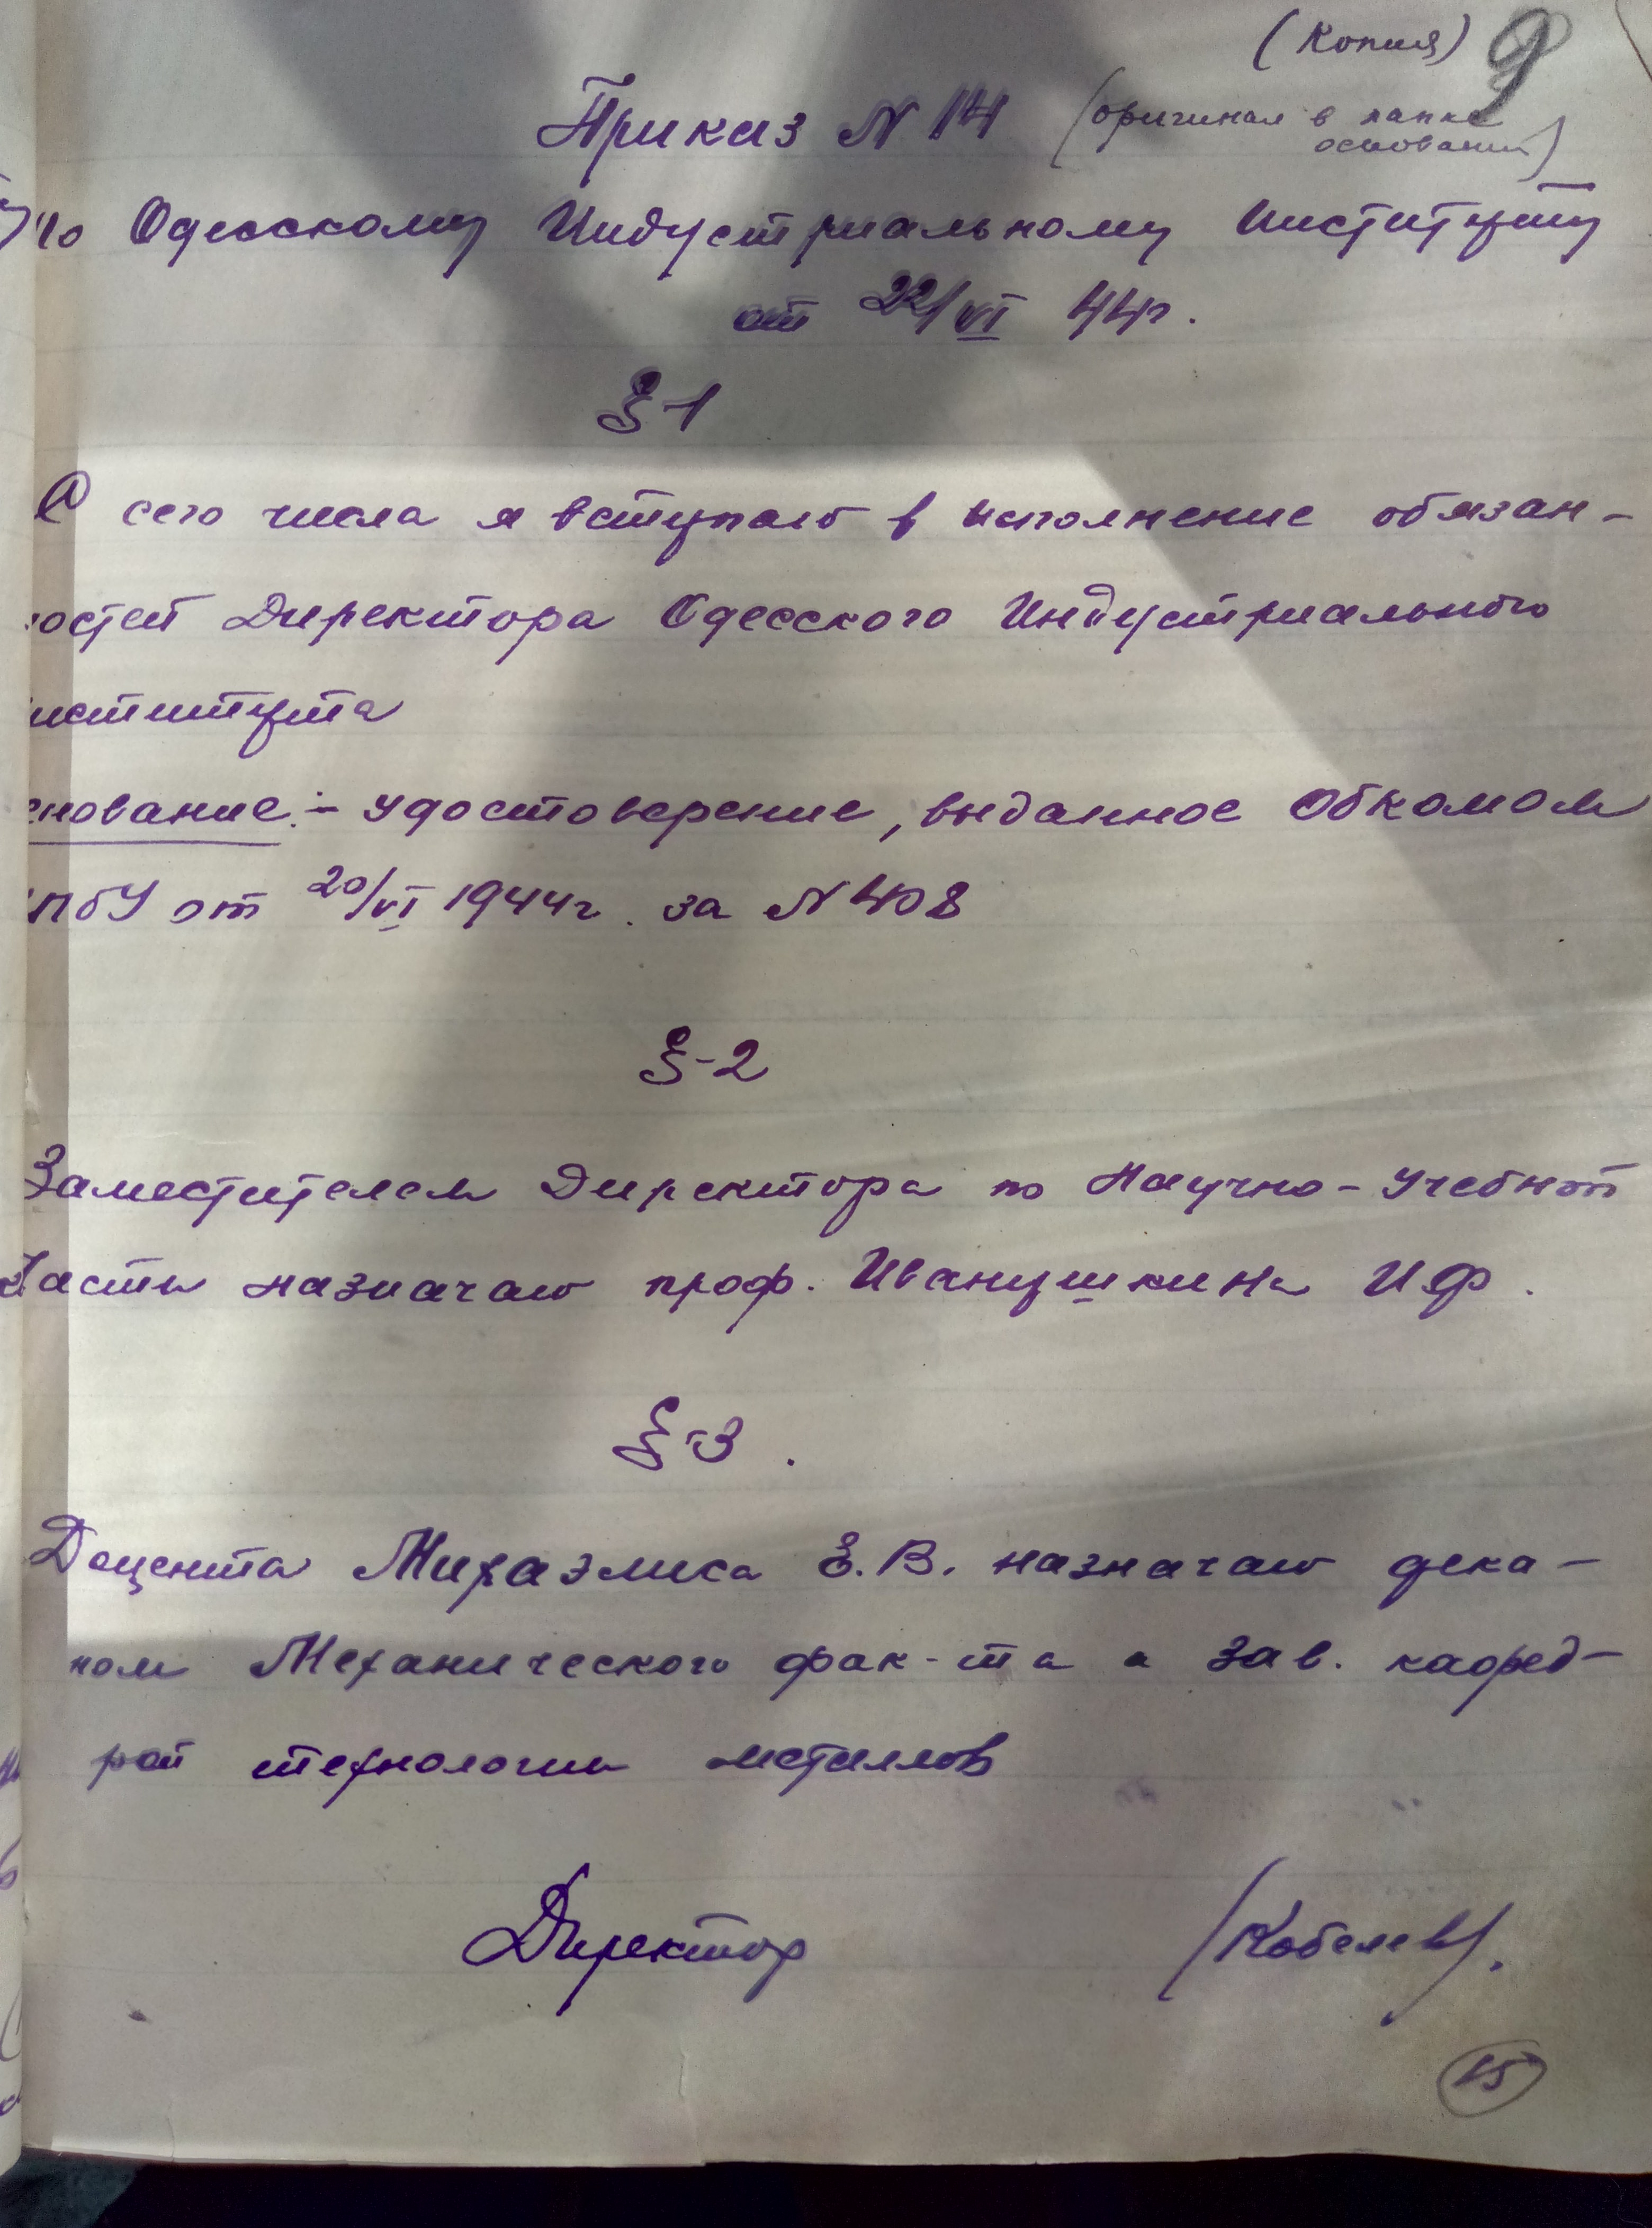 (Копия) 9
Приказ N 14 (оригинал в папке
оснований)
По Одесскому Индустриальному Институту
от 22/VI 44г.
§-1
С сего числа я вступаю в исполнение обязан-
ностей Директора Одесского Индустриального
института
снование:- Удостоверение, выданное Обкомом
КПбУ от 20/VI 1944г. за N 408
§-2
Заместителем Директора по Научно-Учебной
Части назначаю проф. Иванушкина И.Ф.
§-3.
Доцента Михаэлиса Е.В. назначаю дека-
ном Механического фак-та и зав. кафед-
рой технологии металлов
Директор /Кобелев/.
15